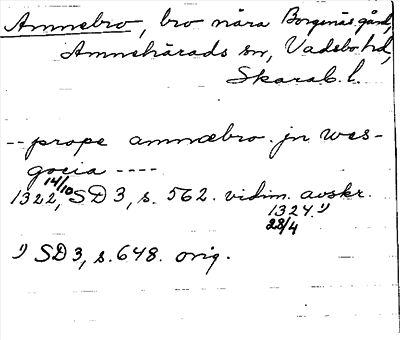 Amnebro, bro nära Borgenäs gård,
Amnehärads sn, Vadsbo hd,
Skarab. l.
-- prope amnæbro jn wes-
gocia ----
14/10
1322, SD 3, s. 562. vidim. avskr.
1324. 1)
28/4
1) SD 3, s. 648. orig.